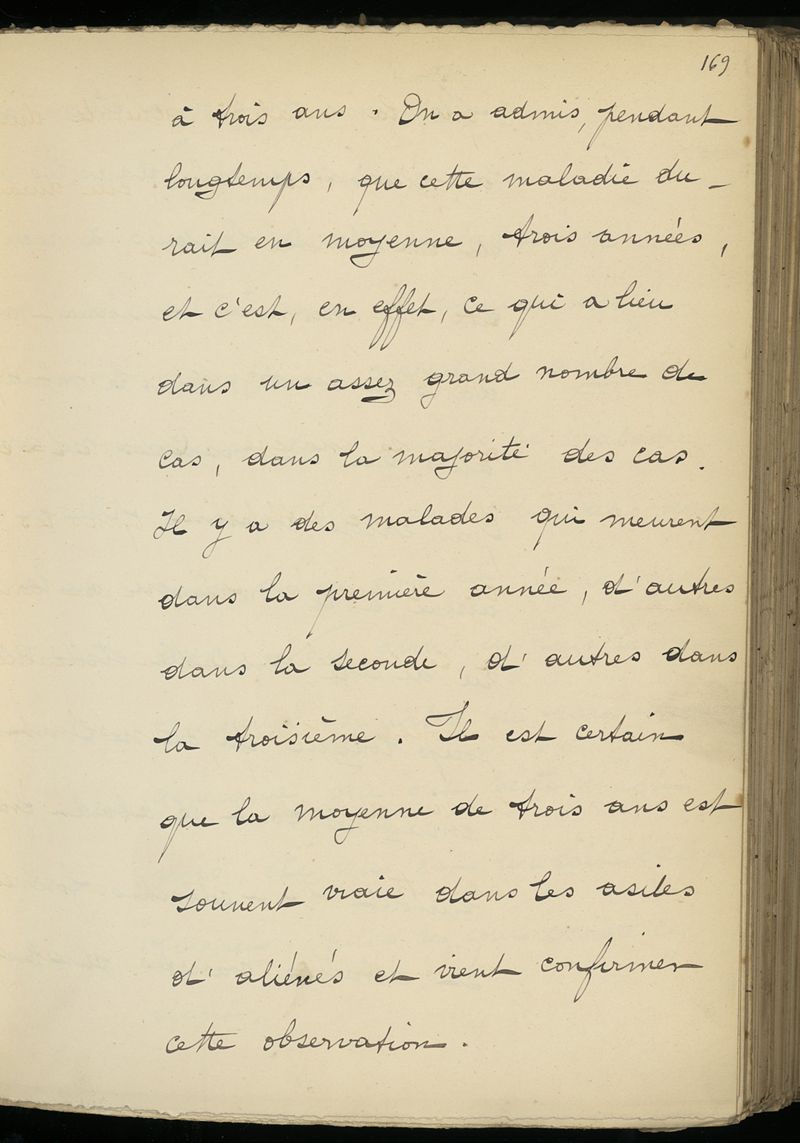 169
à trois ans. On a admis, pendant
longtemps, que cette maladie du_
rait en moyenne, trois années,
et c'est, en effet, ce qui a lieu
dans un assez grand nombre de
cas, dans la majorité des cas.
Il y a des malades qui meurent
dans la première année, d'autres
dans la seconde, d'autres dans
la troisième. Il est certain
que la moyenne de trois ans est
souvent vraie dans les asiles
d'aliénés et vient confirmer
cette observation.